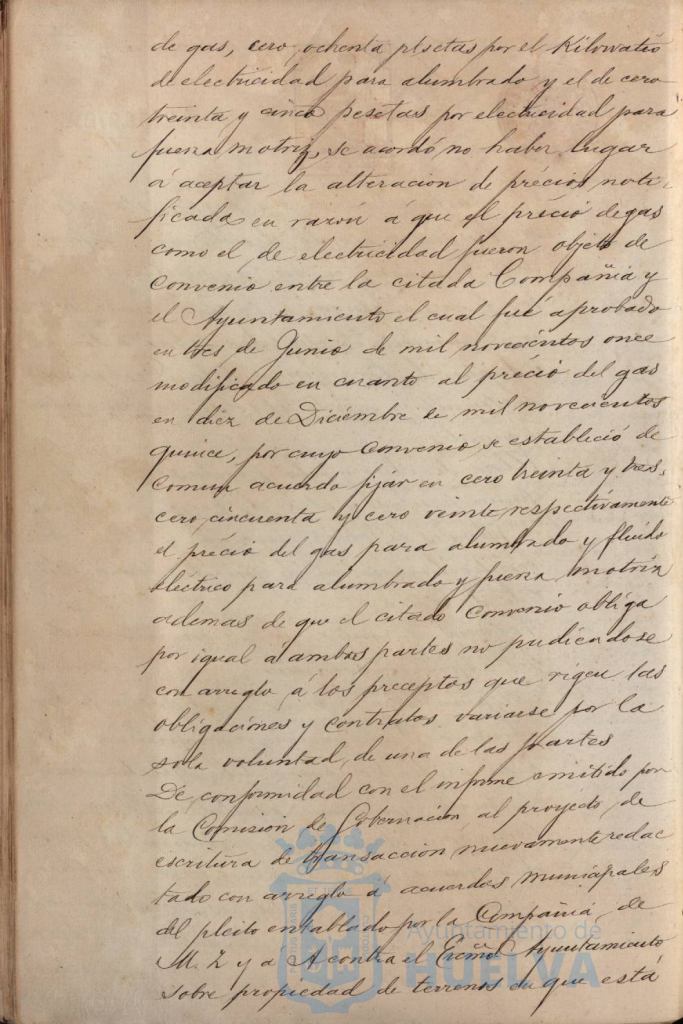 de gas, cero, ochenta pesetas por el Kilowatio
de electricidad para alumbrado y el de cero
treinta y cinco pesetas por electricidad para
fuerza motriz, se acordó no haber lugar
á aceptar la alteracion de précios noti-
ficada en razón á que el précio de gas
como el de electricidad fueron objeto de
convenio entre la citada Compañía y
el Ayuntamiento el cual fué aprobado
en tres de Junio de mil novecientos once
modificado en cuanto al précio del gas
en diez de Diciembre de mil novecientos
quince, por cuyo convenio se estableció de
comun acuerdo fijar en cero treinta y tres,
cero, cincuenta y cero veinte respectivamente
el précio del gas para alumbrado y fluido
eléctrico para alumbrado y fuerza motriz
ademas de que el citado convenio obliga
por igual á ambas partes no pudiendose
con arreglo á los preceptos que rigen las
obligaciones y contratos variarse por la
sola voluntad de una de las partes
De conformidad con el informe emitido por
la Comisión de Gobernacion al proyecto de
escritura de transaccion nuevamente redac
tado con arreglo á acuerdos municipales
del pleito entablado por la Compañia de
M. Z y a A contra el Excmo Ayuntamiento
sobre propiedad de terrenos en que está
Ayuntamiento de
HUELVA